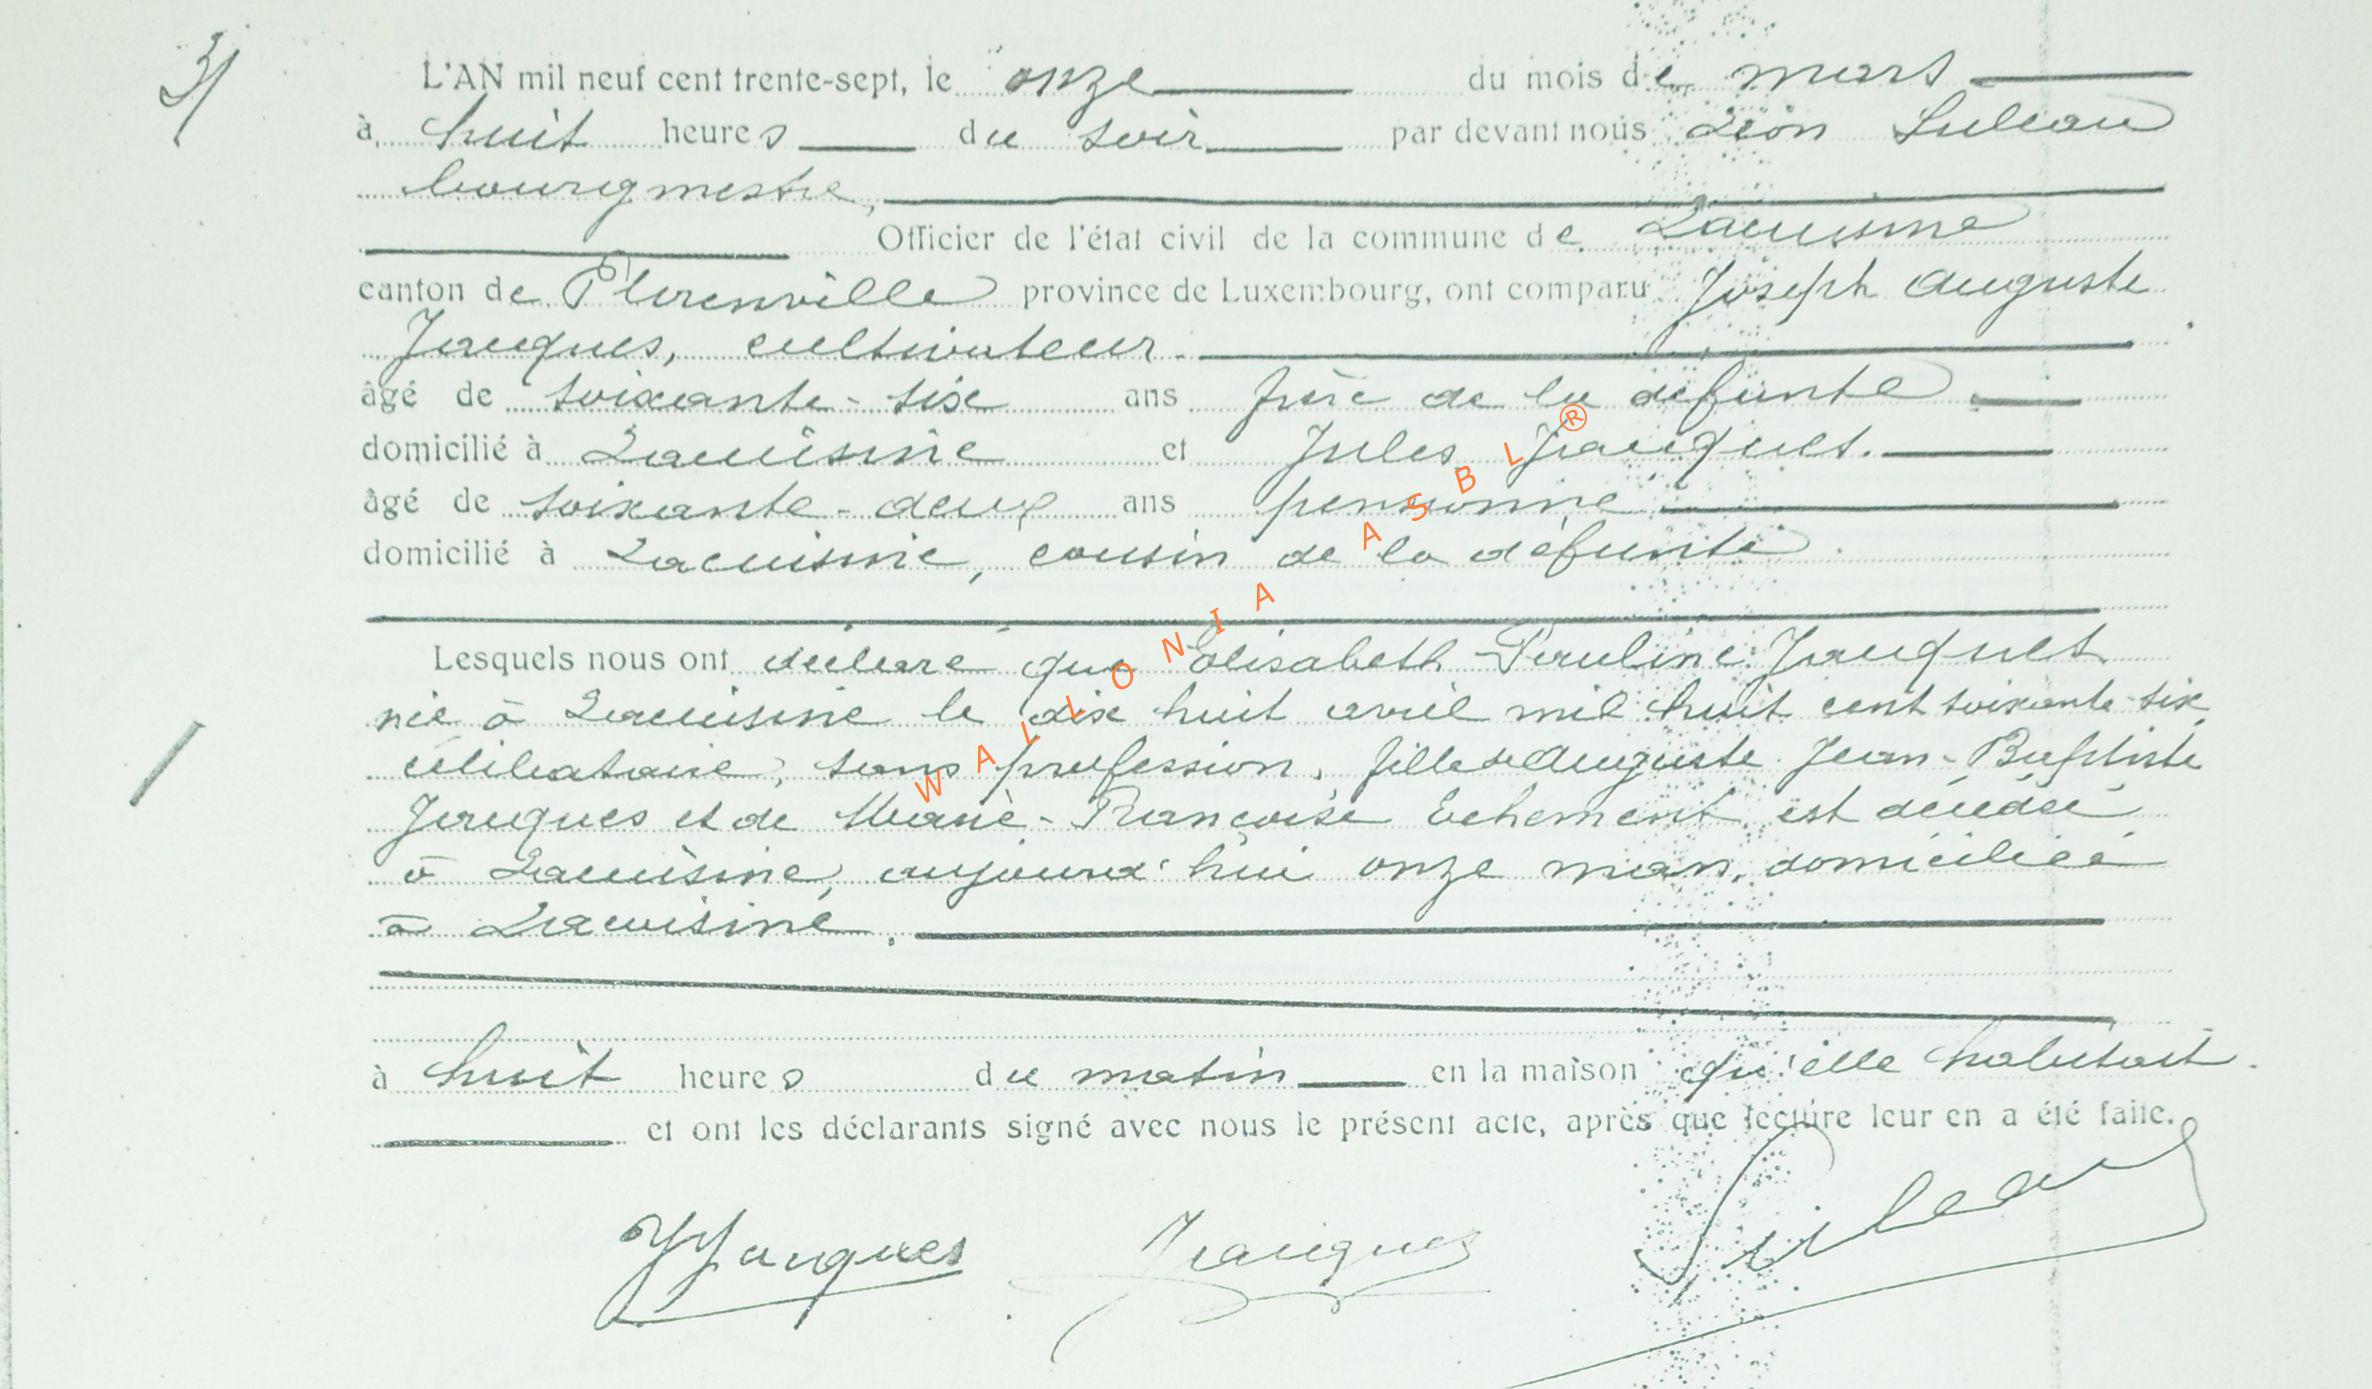 3/
L'AN mil neuf cent trente-sept, le onze du mois de mars
à huit heures du soir par devant nous Léon
bourgmestre,
Officier de l'état civil de la commune de Lacuisine
canton de Florenville province de Luxembourg, ont comparu Joseph Auguste
Jacques, cultivateur.
âgé de soixante-six ans frère de la défunte.
domicilié à Lacuisine et Jules Jacques.
âgé de soixante-deux ans pensionné
domicilié à Lacuisine, cousin de la défunte.
Lesquels nous ont déclaré que Elisabeth Pauline Jacques
née à Lacuisine le dix huit avril mil huit cent soixante-six
célibataire, sans profession, fille de Auguste Jean-Baptiste
Jacques et de Marie-Françoise Echement est décédée
à Lacuisine, aujourd'hui onze mars, domiciliée
à Lacuisine.
à huit heures du matin en la maison qu'elle habitait.
et ont les déclarants signé avec nous le présent acte, après que lecture leur en a été faite.
JJacques Jacques
WALLONIA ASBL®